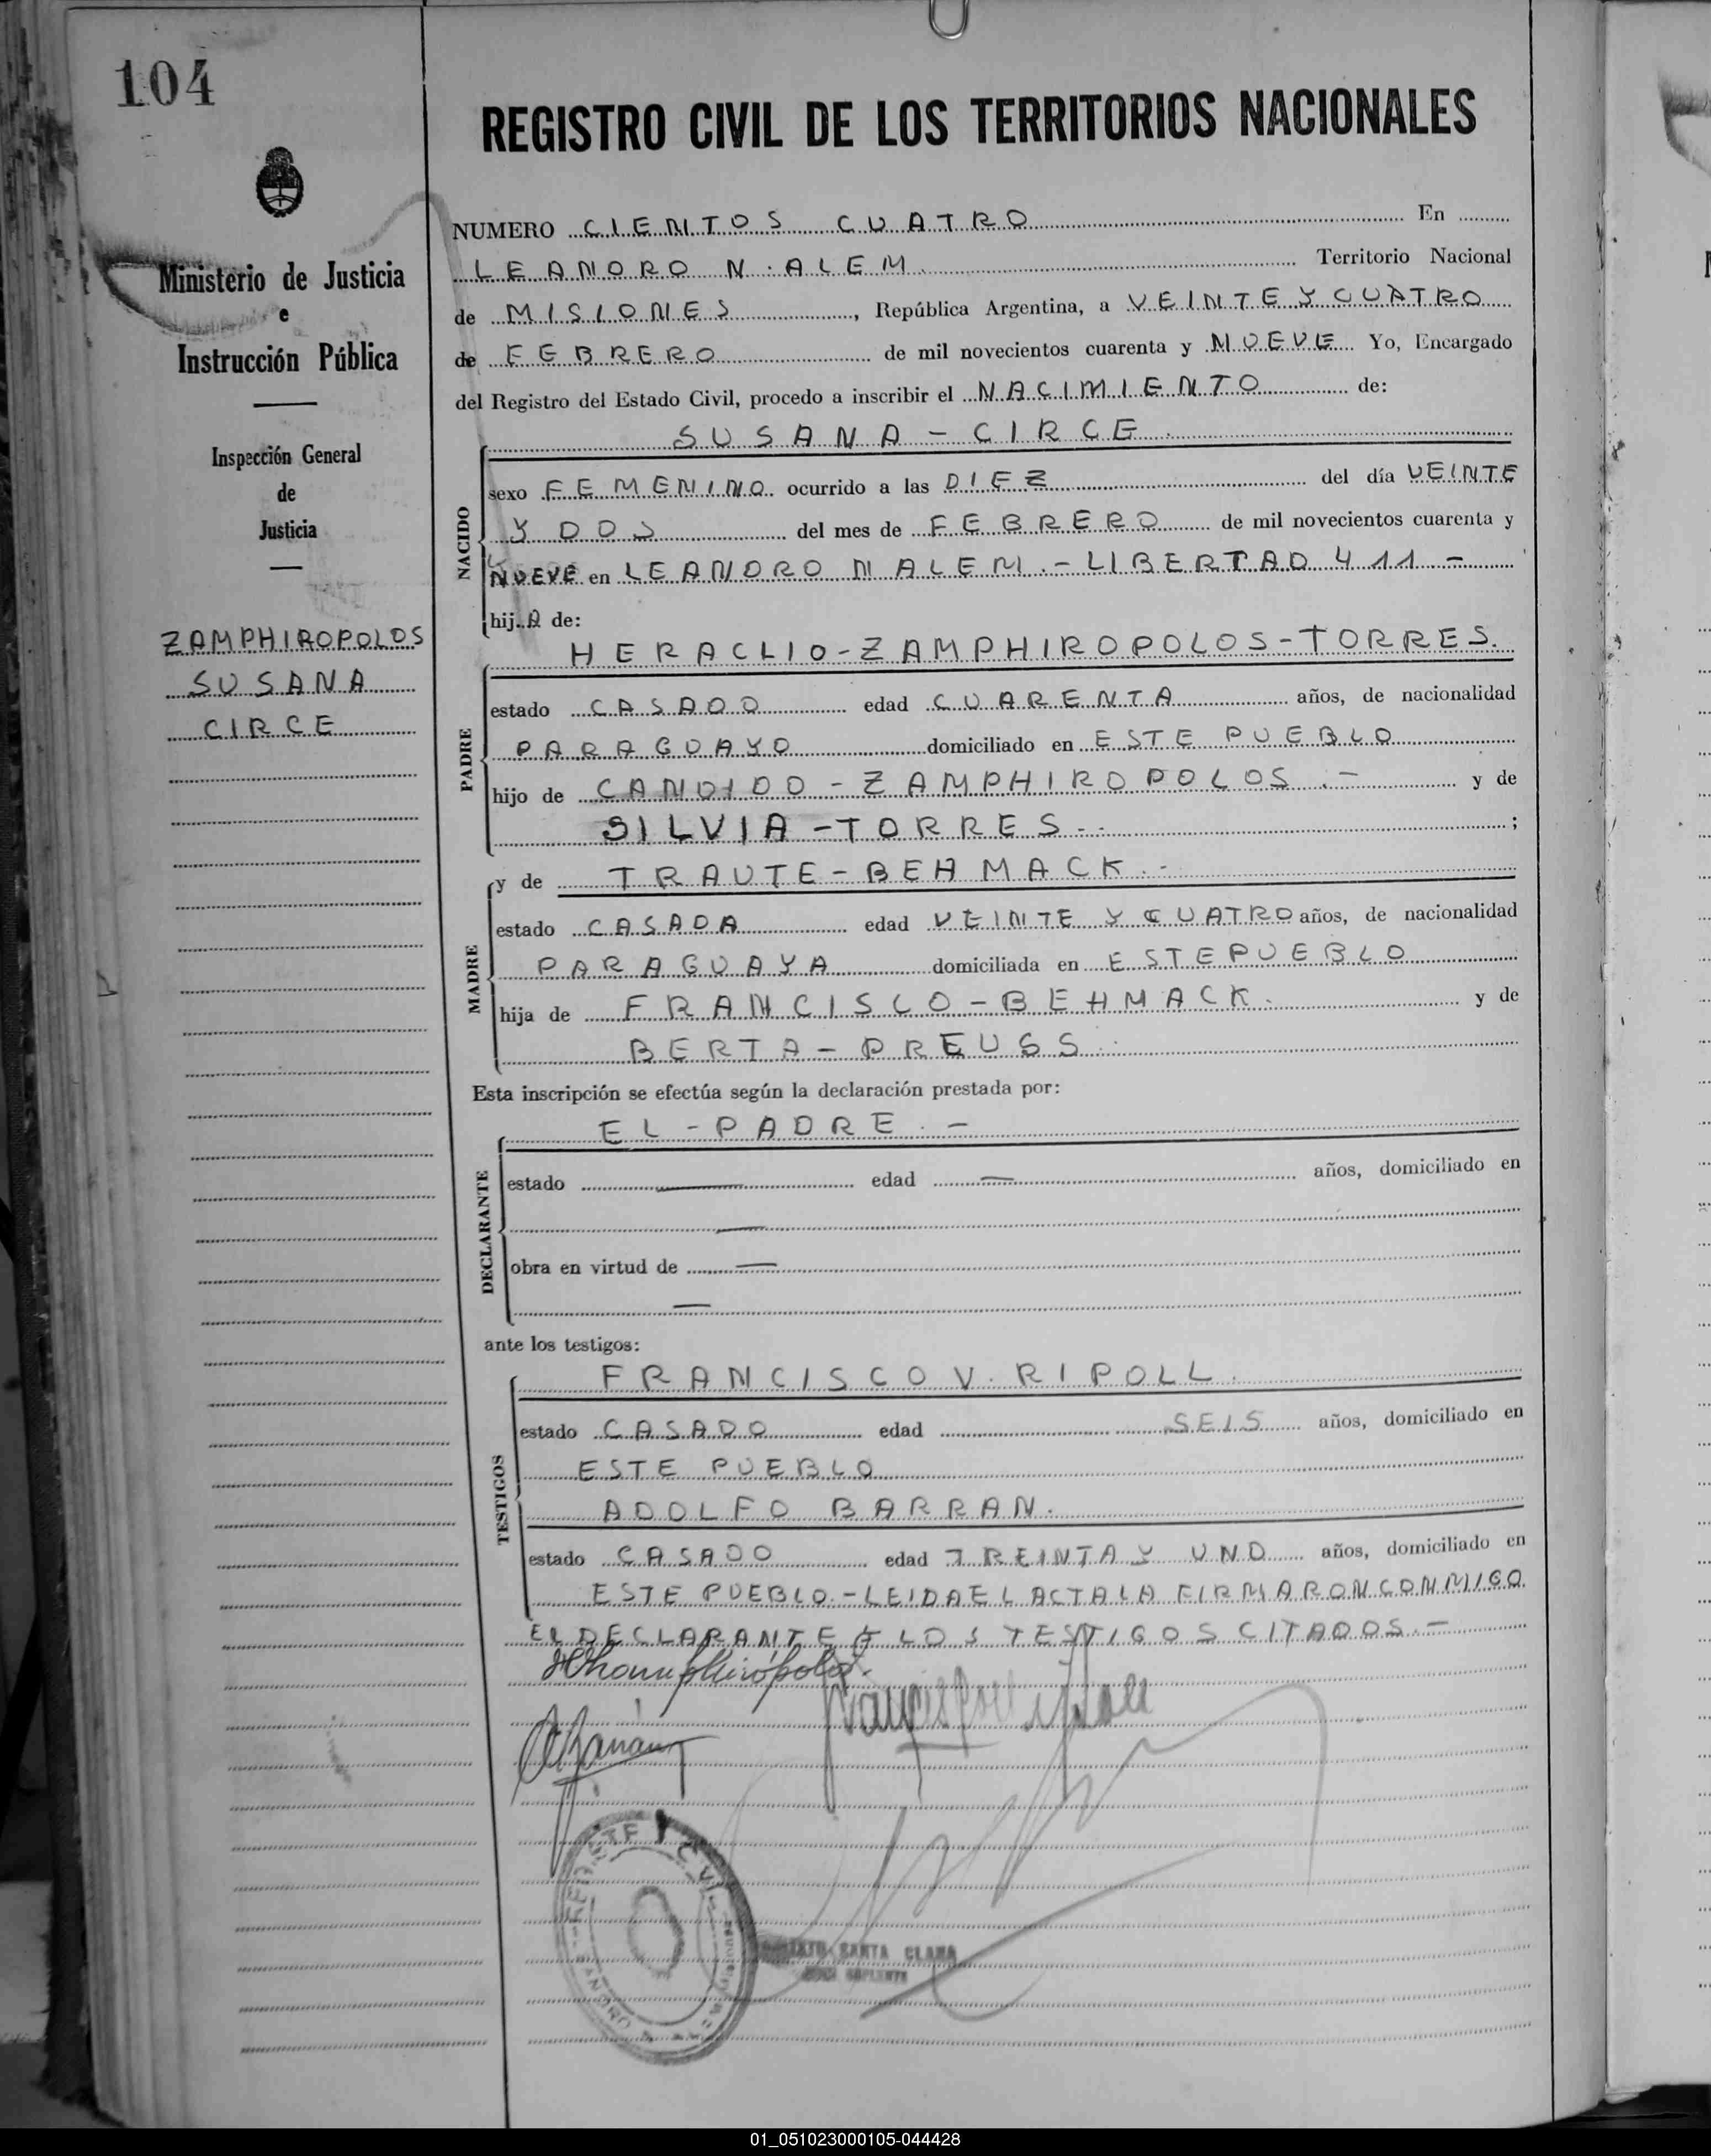 104
REGISTRO CIVIL DE LOS TERRITORIOS NACIONALES
Ministerio de Justicia
e
Instrucción Pública
Inspección General
de
Justicia
ZAMPHIROPOLOS
SUSANA
CIRCE
NUMERO CIENTOS CUATRO En
LEANDRO N. ALEM Territorio Nacional
de MISIONES, República Argentina, a VEINTE Y CUATRO
de FEBRERO de mil novecientos cuarenta y NUEVE Yo, Encargado
del Registro del Estado Civil, procedo a inscribir el NACIMIENTO de:
SUSANA - CIRCE
NACIDO
sexo FEMENINO ocurrido a las DIEZ del día VEINTE
Y DOS del mes de FEBRERO de mil novecientos cuarenta y
NUEVE en LEANDRO N ALEM. - LIBERTAD 411 -
hij A de:
HERACLIO - ZAMPHIROPOLOS - TORRES.
PADRE
estado CASADO edad CUARENTA años, de nacionalidad
PARAGUAYO domiciliado en ESTE PUEBLO
hijo de CANDIDO - ZAMPHIROPOLOS. - y de
SILVIA - TORRES - . ;
y de TRAUTE - BEHMACK. -
MADRE
estado CASADA edad VEINTE Y CUATRO años, de nacionalidad
PARAGUAYA domiciliada en ESTE PUEBLO
hija de FRANCISCO - BEHMACK. y de
BERTA - PREUSS
Esta inscripción se efectúa según la declaración prestada por:
EL - PADRE. -
DECLARANTE
estado — edad — años, domiciliado en
—
obra en virtud de —
—
ante los testigos:
FRANCISCO V. RIPOLL.
TESTIGOS
estado CASADO edad SEIS años, domiciliado en
ESTE PUEBLO
ADOLFO BARRAN.
estado CASADO edad TREINTA Y UNO años, domiciliado en
ESTE PUEBLO. - LEIDA EL ACTA LA FIRMARON CONMIGO
EL DECLARANTE Y LOS TESTIGOS CITADOS. -
SANTA CLARA
01_051023000105-044428